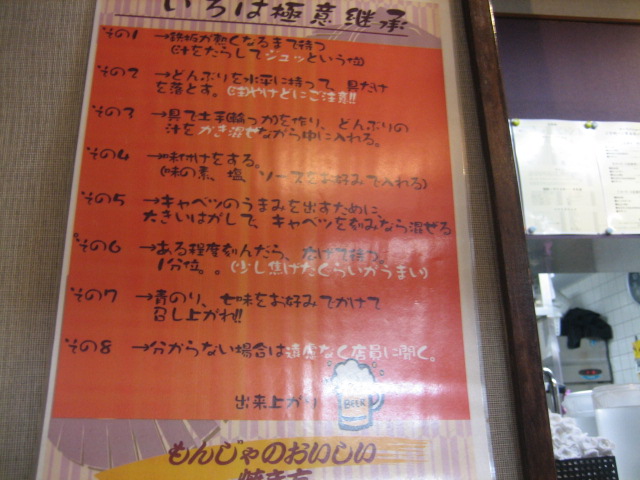 いろは極意継承
その1 →鉄板が熱くなるまで待つ
(汁をたらしてジュッという位)
その2 →どんぶりを水平に持って、具だけ
を落とす。(注)やけどにご注意!!
その3 →具で土手(輪っか)を作り、どんぶりの
汁をかき混ぜながら中に入れる。
その4 →味付けをする。
(味の素、塩、ソースをお好みで入れる)
その5 →キャベツのうまみを出すために、
大きいはがしで、キャベツを刻みなら混ぜる
その6 →ある程度刻んだら、広げて待つ。
1分位。。(少し焦げたくらいがうまい)
その7 →青のり、七味をお好みでかけて
召し上がれ!!
その8 →分からない場合は遠慮なく店員に聞く。
出来上がり
BEER
もんじゃのおいしい
焼き方